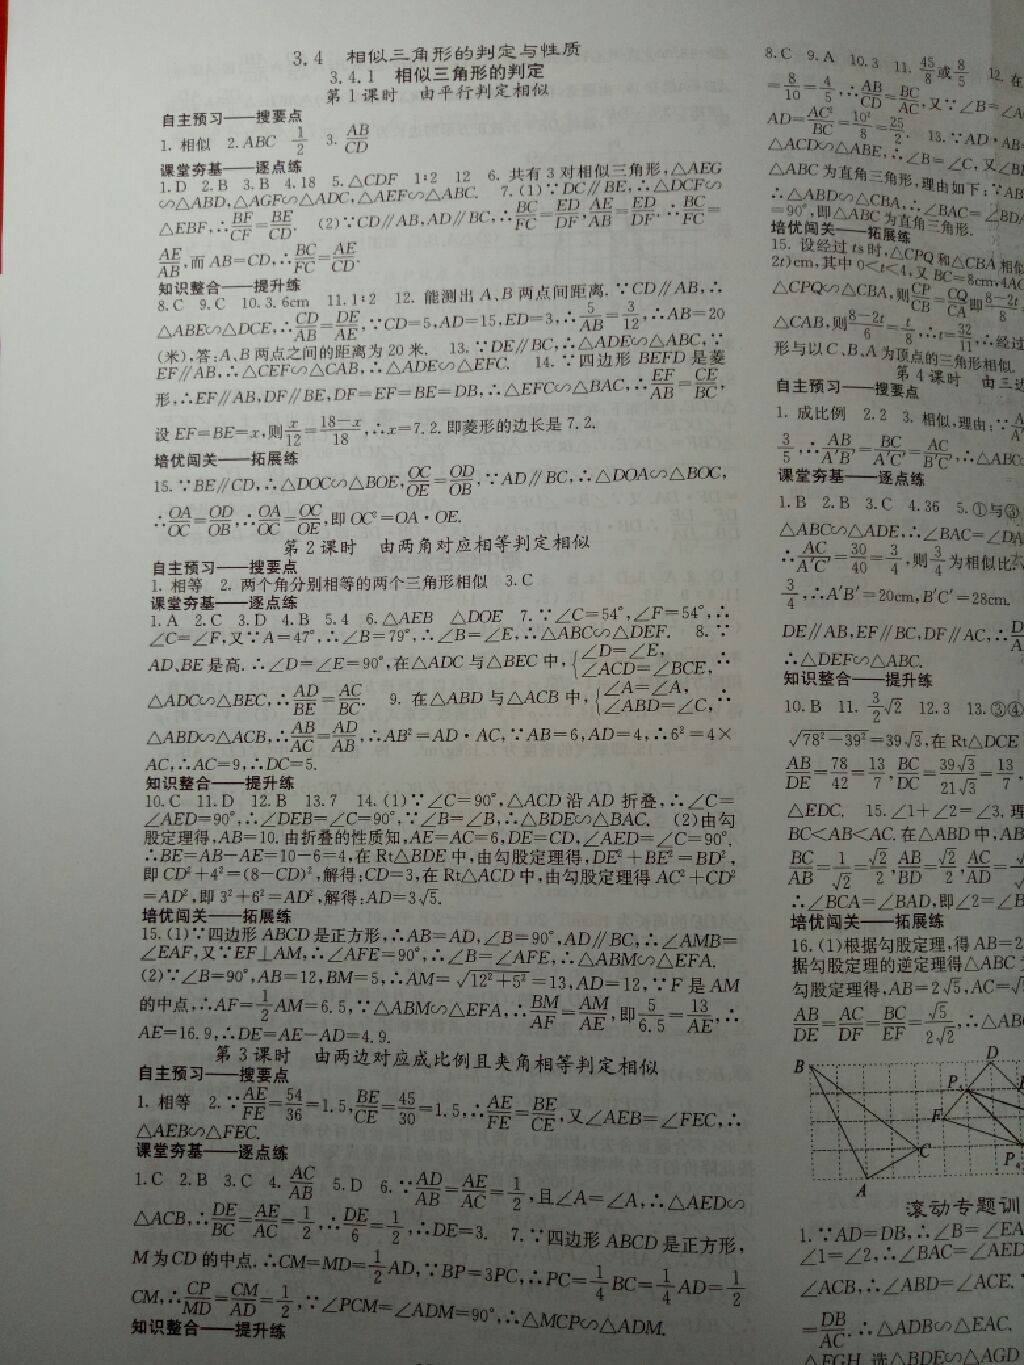 3.4 相似三角形的判定与性质
3.4.1 相似三角形的判定
第1课时 由平行判定相似
自主预习——搜要点
1. 相似 2. ABC 1/2 3. AB/CD
课堂夯基——逐点练
1. D 2. B 3. B 4. 18 5. △CDF 1∶2 12 6. 共有3对相似三角形,△AEG
∽△ABD,△AGF∽△ADC,△AEF∽△ABC. 7. (1)∵DC∥BE,∴△DCF∽
△EBF,∴BF/CF=BE/CD. (2)∵CD∥AB,AD∥BC,∴BC/FC=ED/DF,AE/AB=ED/DF,∵BC/FC=
AE/AB,而AB=CD,∴BC/FC=AE/CD.
知识整合——提升练
8. C 9. C 10. 3.6cm 11. 1∶2 12. 能测出A、B两点间距离. ∵CD∥AB,∴
△ABE∽△DCE,∴CD/AB=DE/AE,∵CD=5,AD=15,ED=3,∴5/AB=3/12,∴AB=20
(米),答:A、B两点之间的距离为20米. 13. ∵DE∥BC,∴△ADE∽△ABC,∵
EF∥AB,∴△CEF∽△CAB,∴△ADE∽△EFC. 14. ∵四边形BEFD是菱
形,∴EF∥AB,DF∥BE,DF=EF=BE=DB,∴△EFC∽△BAC,∴EF/AB=CE/BC,
设EF=BE=x,则x/12=18-x/18,∴x=7.2. 即菱形的边长是7.2.
培优闯关——拓展练
15. ∵BE∥CD,∴△DOC∽△BOE,OC/OE=OD/OB,∵AD∥BC,∴△DOA∽△BOC,
∴OA/OC=OD/OB,∵OA/OC=OC/OE,即OC²=OA·OE.
第2课时 由两角对应相等判定相似
自主预习——搜要点
1. 相等 2. 两个角分别相等的两个三角形相似 3. C
课堂夯基——逐点练
1. A 2. C 3. D 4. B 5. 4 6. △AEB △DOE 7. ∵∠C=54°,∠F=54°,∴
∠C=∠F,又∵A=47°,∴∠B=79°,∴∠B=∠E,∴△ABC∽△DEF. 8. ∵
AD、BE是高. ∴∠D=∠E=90°,在△ADC与△BEC中,{∠D=∠E, ∠ACD=∠BCE,∴
△ADC∽△BEC,∴AD/BE=AC/BC. 9. 在△ABD与△ACB中,{∠A=∠A, ∠ABD=∠C,∴
△ABD∽△ACB,∴AB/AC=AD/AB,∴AB²=AD·AC,∵AB=6,AD=4,∴6²=4×
AC,∴AC=9,∴DC=5.
知识整合——提升练
10. C 11. D 12. B 13. 7 14. (1)∵∠C=90°,△ACD沿AD折叠,∴∠C=
∠AED=90°,∴∠DEB=∠C=90°,∵∠B=∠B,∴△BDE∽△BAC. (2)由勾
股定理得,AB=10. 由折叠的性质知,AE=AC=6,DE=CD,∠AED=∠C=90°.
∴BE=AB-AE=10-6=4,在Rt△BDE中,由勾股定理得,DE²+BE²=BD²,
即CD²+4²=(8-CD)²,解得:CD=3,在Rt△ACD中,由勾股定理得AC²+CD²
=AD²,即3²+6²=AD²,解得:AD=3√5.
培优闯关——拓展练
15. (1)∵四边形ABCD是正方形,∴AB=AD,∠B=90°,AD∥BC,∴∠AMB=
∠EAF,又∵EF⊥AM,∴∠AFE=90°,∴∠B=∠AFE,∴△ABM∽△EFA.
(2)∵∠B=90°,AB=12,BM=5,∴AM=√12²+5²=13,AD=12,∵F是AM
的中点,∴AF=1/2AM=6.5,∵△ABM∽△EFA,∴BM/AF=AM/AE,即5/6.5=13/AE,∴
AE=16.9,∴DE=AE-AD=4.9.
第3课时 由两边对应成比例且夹角相等判定相似
自主预习——搜要点
1. 相等 2. ∵AE/FE=54/36=1.5,BE/CE=45/30=1.5,∴AE/FE=BE/CE,又∠AEB=∠FEC,∴
△AEB∽△FEC.
课堂夯基——逐点练
1. C 2. B 3. C 4. AC/AB 5. D 6. ∵AD/AB=AE/AC=1/2,且∠A=∠A,∴△AED∽
△ACB,∴DE/BC=AE/AC=1/2,∴DE/6=1/2,∴DE=3. 7. ∵四边形ABCD是正方形,
M为CD的中点. ∴CM=MD=1/2AD,∵BP=3PC,∴PC=1/4BC=1/4AD=1/2
CM,∴CP/MD=CM/AD=1/2,∵∠PCM=∠ADM=90°,∴△MCP∽△ADM.
知识整合——提升练
8. C 9. A 10. 3 11. 45/8或8/5 12. 在
=8/10=4/5,∴AB/CD=BC/AC,又∵∠B=∠A
AD=AC²/BC=10²/8=25/2. 13. ∵AD·AB=
△ACD∽△ABE,∴∠B=∠C,又∠B
△ABC为直角三角形,理由如下:∵AB
∴△ABD∽△CBA,∴∠BAC=∠BDA
=90°,即△ABC为直角三角形.
培优闯关——拓展练
15. 设经过ts时,△CPQ和△CBA相似
2t)cm,其中0<t<4,又BC=8cm,4AC
△CPQ∽△CBA,则CP/CB=CQ/CA即8-2t/8
△CAB,则8-2t/6=t/8,∴t=32/11,∴经过
形与以C、B、A为顶点的三角形相似.
第4课时 由三边
自主预习——搜要点
1. 成比例 2. 2 3. 相似,理由:∵A
3/5,∴AB/A'B'=BC/A'C'=AC/B'C',∴△ABC
课堂夯基——逐点练
1. B 2. B 3. C 4. 36 5. ①与③
△ABC∽△ADE,∴∠BAC=∠DA
∴AC/A'C'=30/40=3/4,则3/4为相似比
3/4,∴A'B'=20cm,B'C'=28cm.
DE∥AB,EF∥BC,DF∥AC,∴D
∴△DEF∽△ABC.
知识整合——提升练
10. B 11. 3/2√2 12. 3 13. ③④
√78²-39²=39√3,在Rt△DCE
AB/DE=78/42=13/7,BC/DC=39√3/21√3=13/7,
△EDC. 15. ∠1+∠2=∠3. 理
BC<AB<AC. 在△ABD中,AB
BC/AB=1/√2=√2/2,AB/BD=√2/2,AC/AD=√
∴∠BCA=∠BAD,即∠2=∠B
培优闯关——拓展练
16. (1)根据勾股定理,得AB=2
据勾股定理的逆定理得△ABC
勾股定理得,AB=2√5,AC=√
AB/DE=AC/DF=BC/EF=√5/2√2,∴△ABC
B D P₁ F C P₄ A
滚动专题训
1. ∵AD=DB,∴∠B=∠EA
∠1=∠2,∴∠BAC=∠AED
∠ACB,∴∠ABD=∠ACE.
=DB/AC. ∴△ADB∽△EAC.
△FGH. 选△BDE∽△AGD